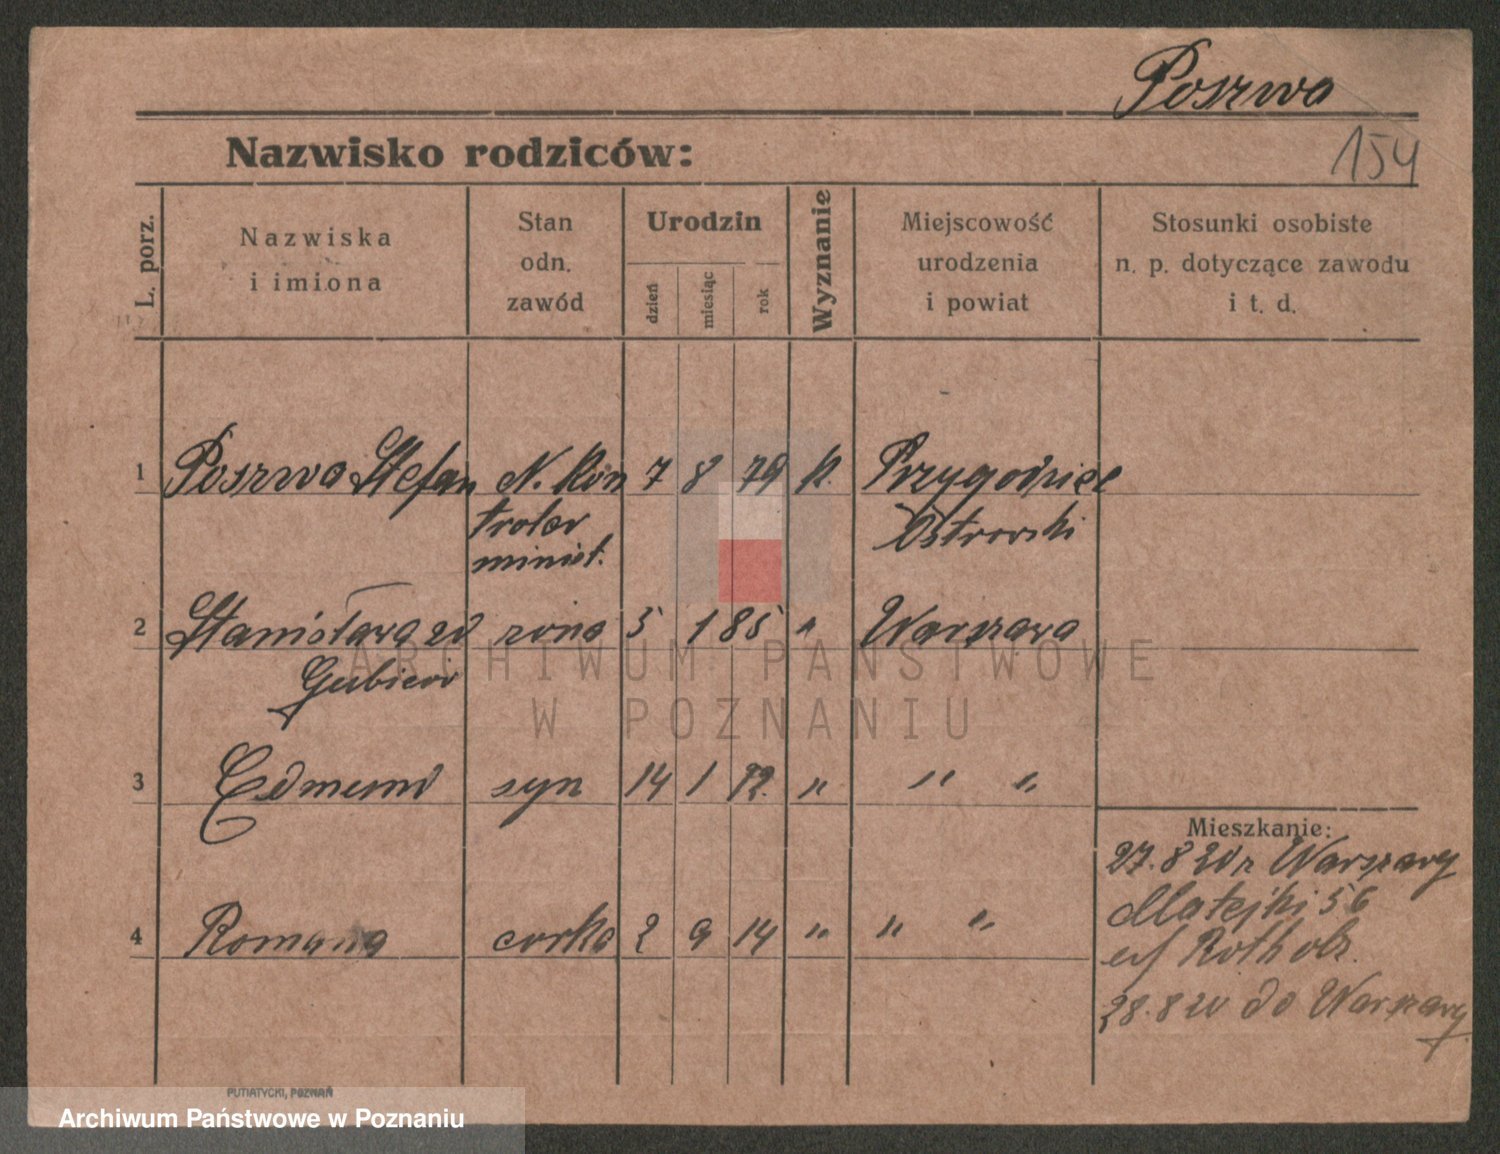 Poszwa
Nazwisko rodziców:
154
L. porz.
Nazwiska
i imiona
Stan
odn.
zawód
Urodzin
dzień
miesiąc
rok
Wyznanie
Miejscowość
urodzenia
i powiat
Stosunki osobiste
n. p. dotyczące zawodu
i t. d.
1 Poszwa Stefan N. Kon 7 8 79 k. Przygodzice
troler Ostrowski
minist.
2 Stanisława zd żona 5 1 85 " Warszawa
3 Edmund syn 14 1 12. " " "
Mieszkanie:
27.8 20 r Warszawy
4 Romana córka 2 9 14 " " "
Matejki 56
28.8 20 do Warszawy
ARCHIWUM PAŃSTWOWE
W POZNANIU
PUTIATYCKI, POZNAŃ
Archiwum Państwowe w Poznaniu